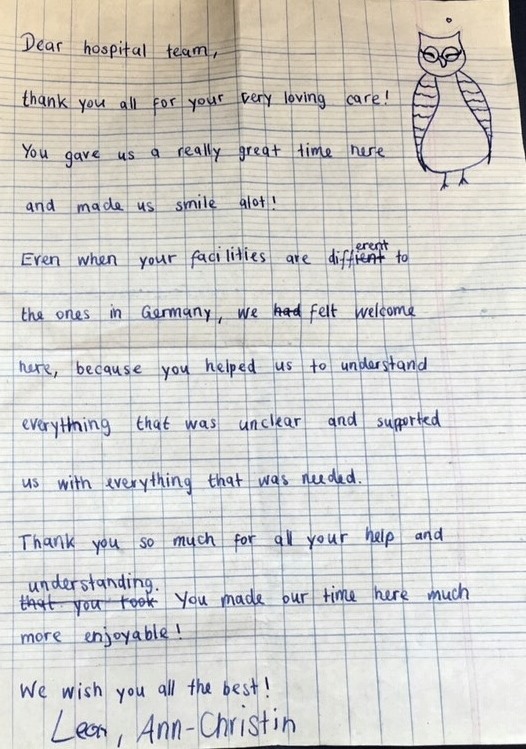 Dear hospital team,
thank you all for your very loving care!
You gave us a really great time here
and made us smile alot!
Even when your facilities are different to
the ones in Germany, we had felt welcome
here, because you helped us to understand
everything that was unclear and supported
us with everything that was needed.
Thank you so much for all your help and
understanding.
that you took You made our time here much
more enjoyable!
We wish you all the best!
Leon, Ann-Christin